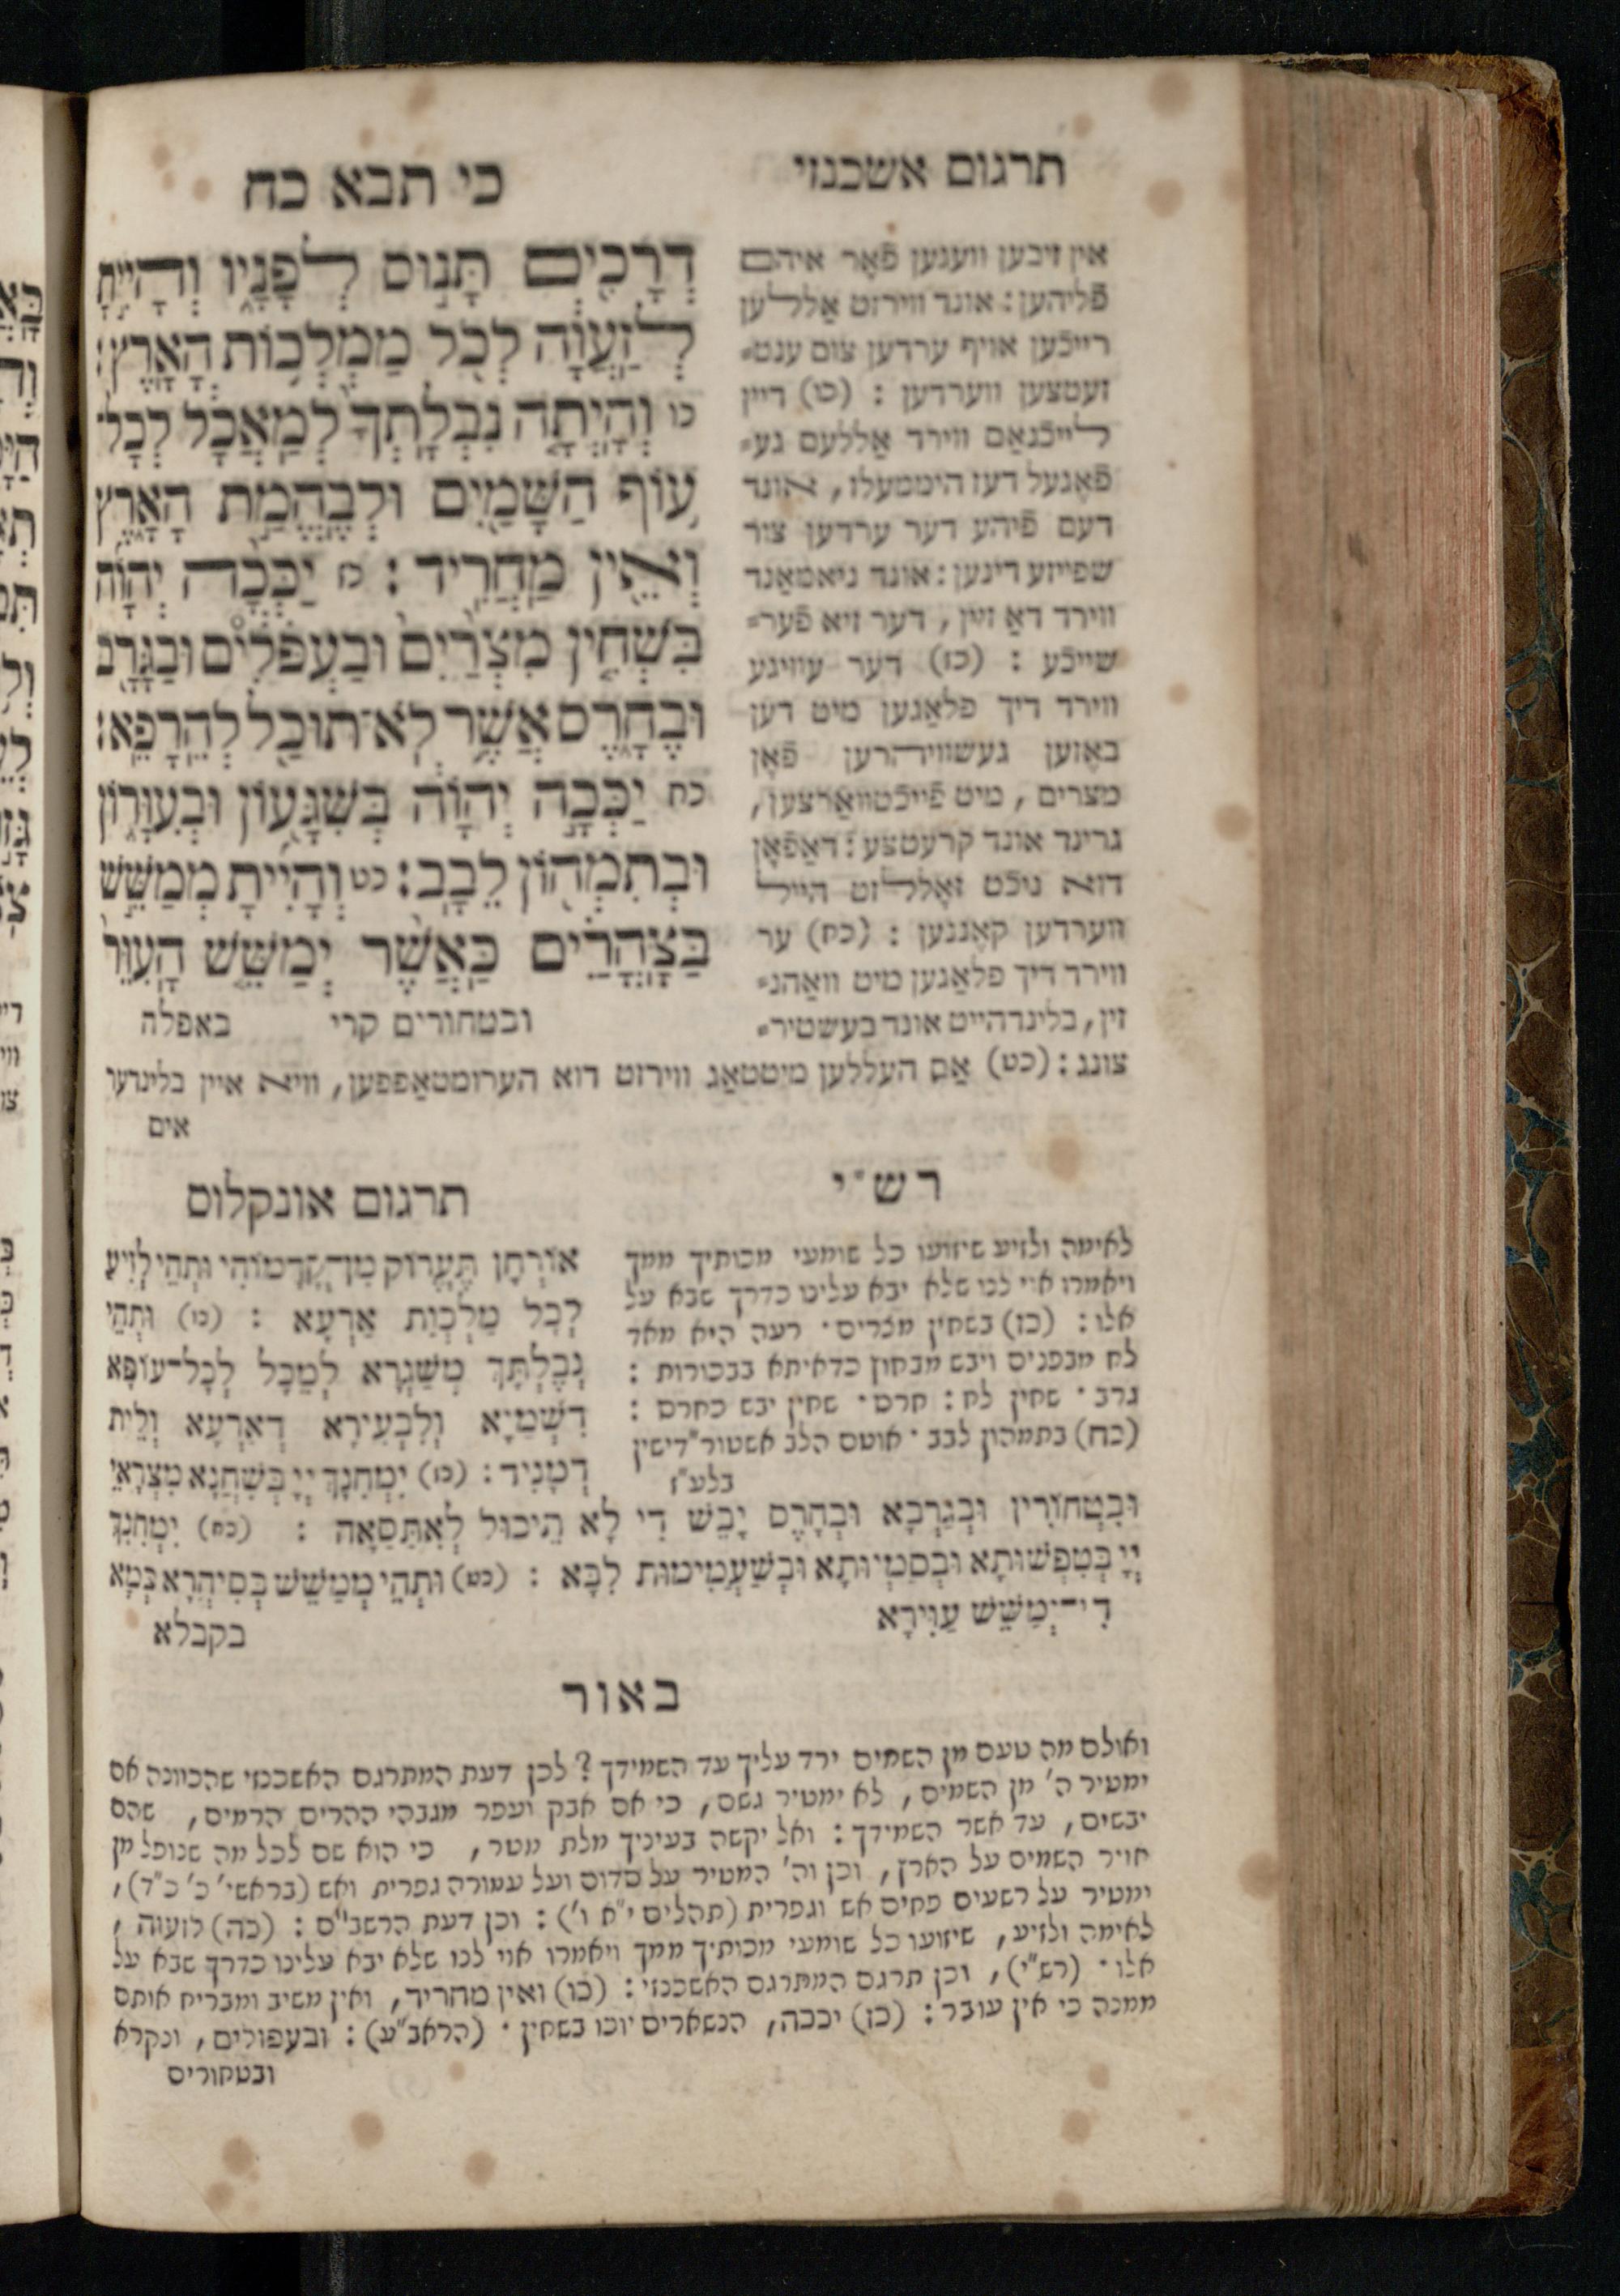 כי תבא כח
תרגום אשכנזי
דְרָכִ֖ים תָּנ֣וּס לְפָנָ֑יו וְהָיִ֣יתָ
לְזַעֲוָ֔ה לְכֹ֖ל מַמְלְכ֥וֹת הָאָֽרֶץ׃
כו וְהָיְתָ֤ה נִבְלָֽתְךָ֙ לְמַאֲכָ֔ל לְכָל־
ע֥וֹף הַשָּׁמַ֖יִם וּלְבֶהֱמַ֣ת הָאָ֑רֶץ
וְאֵ֖ין מַחֲרִֽיד׃ כז יַכְּכָ֨ה יְהוָ֜ה
בִּשְׁחִ֤ין מִצְרַ֙יִם֙ וּבַעְפֹלִ֔ים וּבַגָּרָ֖ב
וּבֶחָ֑רֶס אֲשֶׁ֥ר לֹא־תוּכַ֖ל לְהֵרָפֵֽא׃
כח יַכְּכָ֣ה יְהוָ֔ה בְּשִׁגָּע֖וֹן וּבְעִוָּר֑וֹן
וּבְתִמְה֖וֹן לֵבָֽב׃ כט וְהָיִ֜יתָ מְמַשֵּׁ֣שׁ
בַּצָּהֳרַ֗יִם כַּאֲשֶׁ֨ר יְמַשֵּׁ֤שׁ הָעִוֵּר֙
ובטחורים קרי באפלה
אין זיבען וועגען פֿאָר איהם
פֿליהען: אונד ווירזט אַללען
רייכֿען אויף ערדען צום ענט=
זעטצען ווערדען : (כו) דיין
לייכֿנאַם ווירד אַללעם גע=
פֿאָגעל דעז היממעלז, אונד
דעם פֿיהע דער ערדען צור
שפייזע דינען: אונד ניאמאַנד
ווירד דאַ זיין, דער זיא פֿער=
שייכֿע : (כז) דער עוויגע
ווירד דיך פלאַגען מיט דען
באָזען געשווירהרען פֿאָן
מצרים, מיט פֿייכֿטוואַרצען,
גרינד אונד קרעטצע: דאַפֿאָן
דוא ניכֿט זאָללזט הייל
ווערדען קאָננען : (כח) ער
ווירד דיך פלאַגען מיט וואַהנ=
זין, בלינדהייט אונד בעשטיר=
צונג: (כט) אַם העללען מיטטאַג ווירזט דוא הערומטאַפפען, וויא איין בלינדער
אים
רש"י
לאימה ולזיע שיזועו כל שומעי מכותיך ממך
ויאמרו אוי לנו שלא יבא עלינו כדרך שבא על
אלו: (כז) בשחין מצרים · רעה היא מאד
לח מבפנים ויבש מבחוץ כדאיתא בבכורות :
גרב · שחין לח: חרס · שחין יבש כחרס :
(כח) בתמהון לבב · אוטם הלב אשטור"דישין
בלע"ז
תרגום אונקלוס
אוֹרְחָן תֶּעֱרוֹק מִן־קֳדָמוֹהִי וּתְהֵי לְזֵיעַ
לְכָל מַלְכְוָת אַרְעָא : (כו) וּתְהֵי
נְבֶלְתָּךְ מְשַׁגְרָא לְמֵכָל לְכָל־עוֹפָא
דִשְׁמַיָא וְלִבְעִירָא דְאַרְעָא וְלֵית
דְמָנִיד: (כז) יִמְחִנָךְ יְיָ בְּשִׁחֲנָא מִצְרָאֵי
וּבִטְחוֹרִין וּבְגַרְבָא וּבְחָרֶס יָבֵשׁ דִי לָא תֵיכוּל לְאִתַּסָאָה : (כח) יִמְחִנָךְ
יְיָ בְּטִפְשׁוּתָא וּבְסַמְיוּתָא וּבְשַׁעֲמִימוּת לִבָּא : (כט) וּתְהֵי מְמַשֵּׁשׁ בְּטִיהֲרָא כְּמָא
דִי־יְמַשֵּׁשׁ עַוִּירָא
בקבלא
באור
ואולם מה טעם מן השמים ירד עליך עד השמידך? לכן דעת המתרגם האשכנזי שהכוונה אם
ימטיר ה' מן השמים, לא ימטיר גשם, כי אם אבק ועפר מגבהי ההרים הרמים, שהם
יבשים, עד אשר השמידך: ואל יקשה בעיניך מלת מטר, כי הוא שם לכל מה שנופל מן
אויר השמים על הארץ, וכן וה' המטיר על סדום ועל עמורה גפרית ואש (בראשי' כ' כ"ד),
ימטיר על רשעים פחים אש וגפרית (תהלים י"א ו'): וכן דעת הרשב"ם: (כה) לזעוה,
לאימה ולזיע, שיזועו כל שומעי מכותיך ממך ויאמרו אוי לנו שלא יבא עלינו כדרך שבא על
אלו · (רש"י), וכן תרגם המתרגם האשכנזי: (כו) ואין מחריד, ואין משיב ומבריח אותם
ממנה כי אין עובר: (כז) יככה, הנשארים יוכו בשחין · (הראב"ע): ובעפולים, ונקרא
ובטחורים